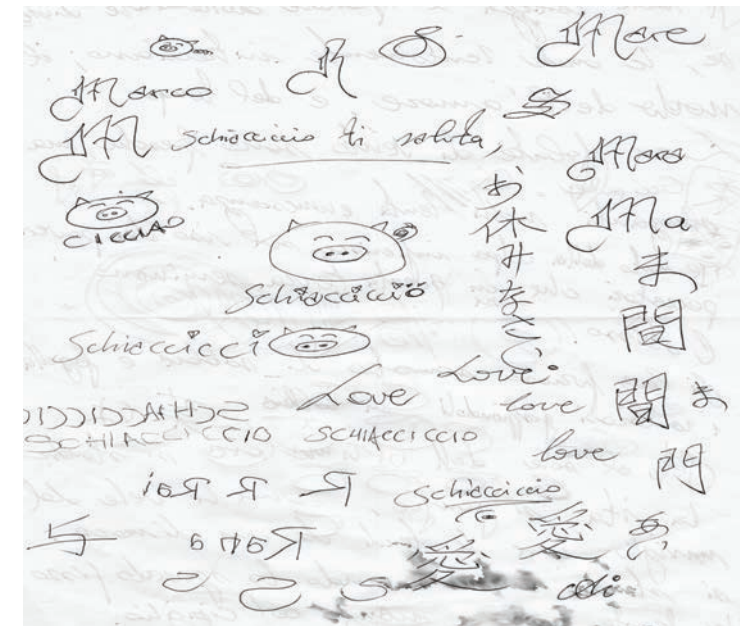 R
Mare
Marco
M Schiacciccio ti saluta,
Mara
CICCIAO
Ma
お休みなさい
ま
間
Schiacciccio
Schiaccicci
Love
Love
love
間 ま
SCHIACCICCIO
SCHIACCICCIO SCHIACCICCIO
love
門
Rai R R
Schiacciccio
Rara
愛 愛 あ
S S S